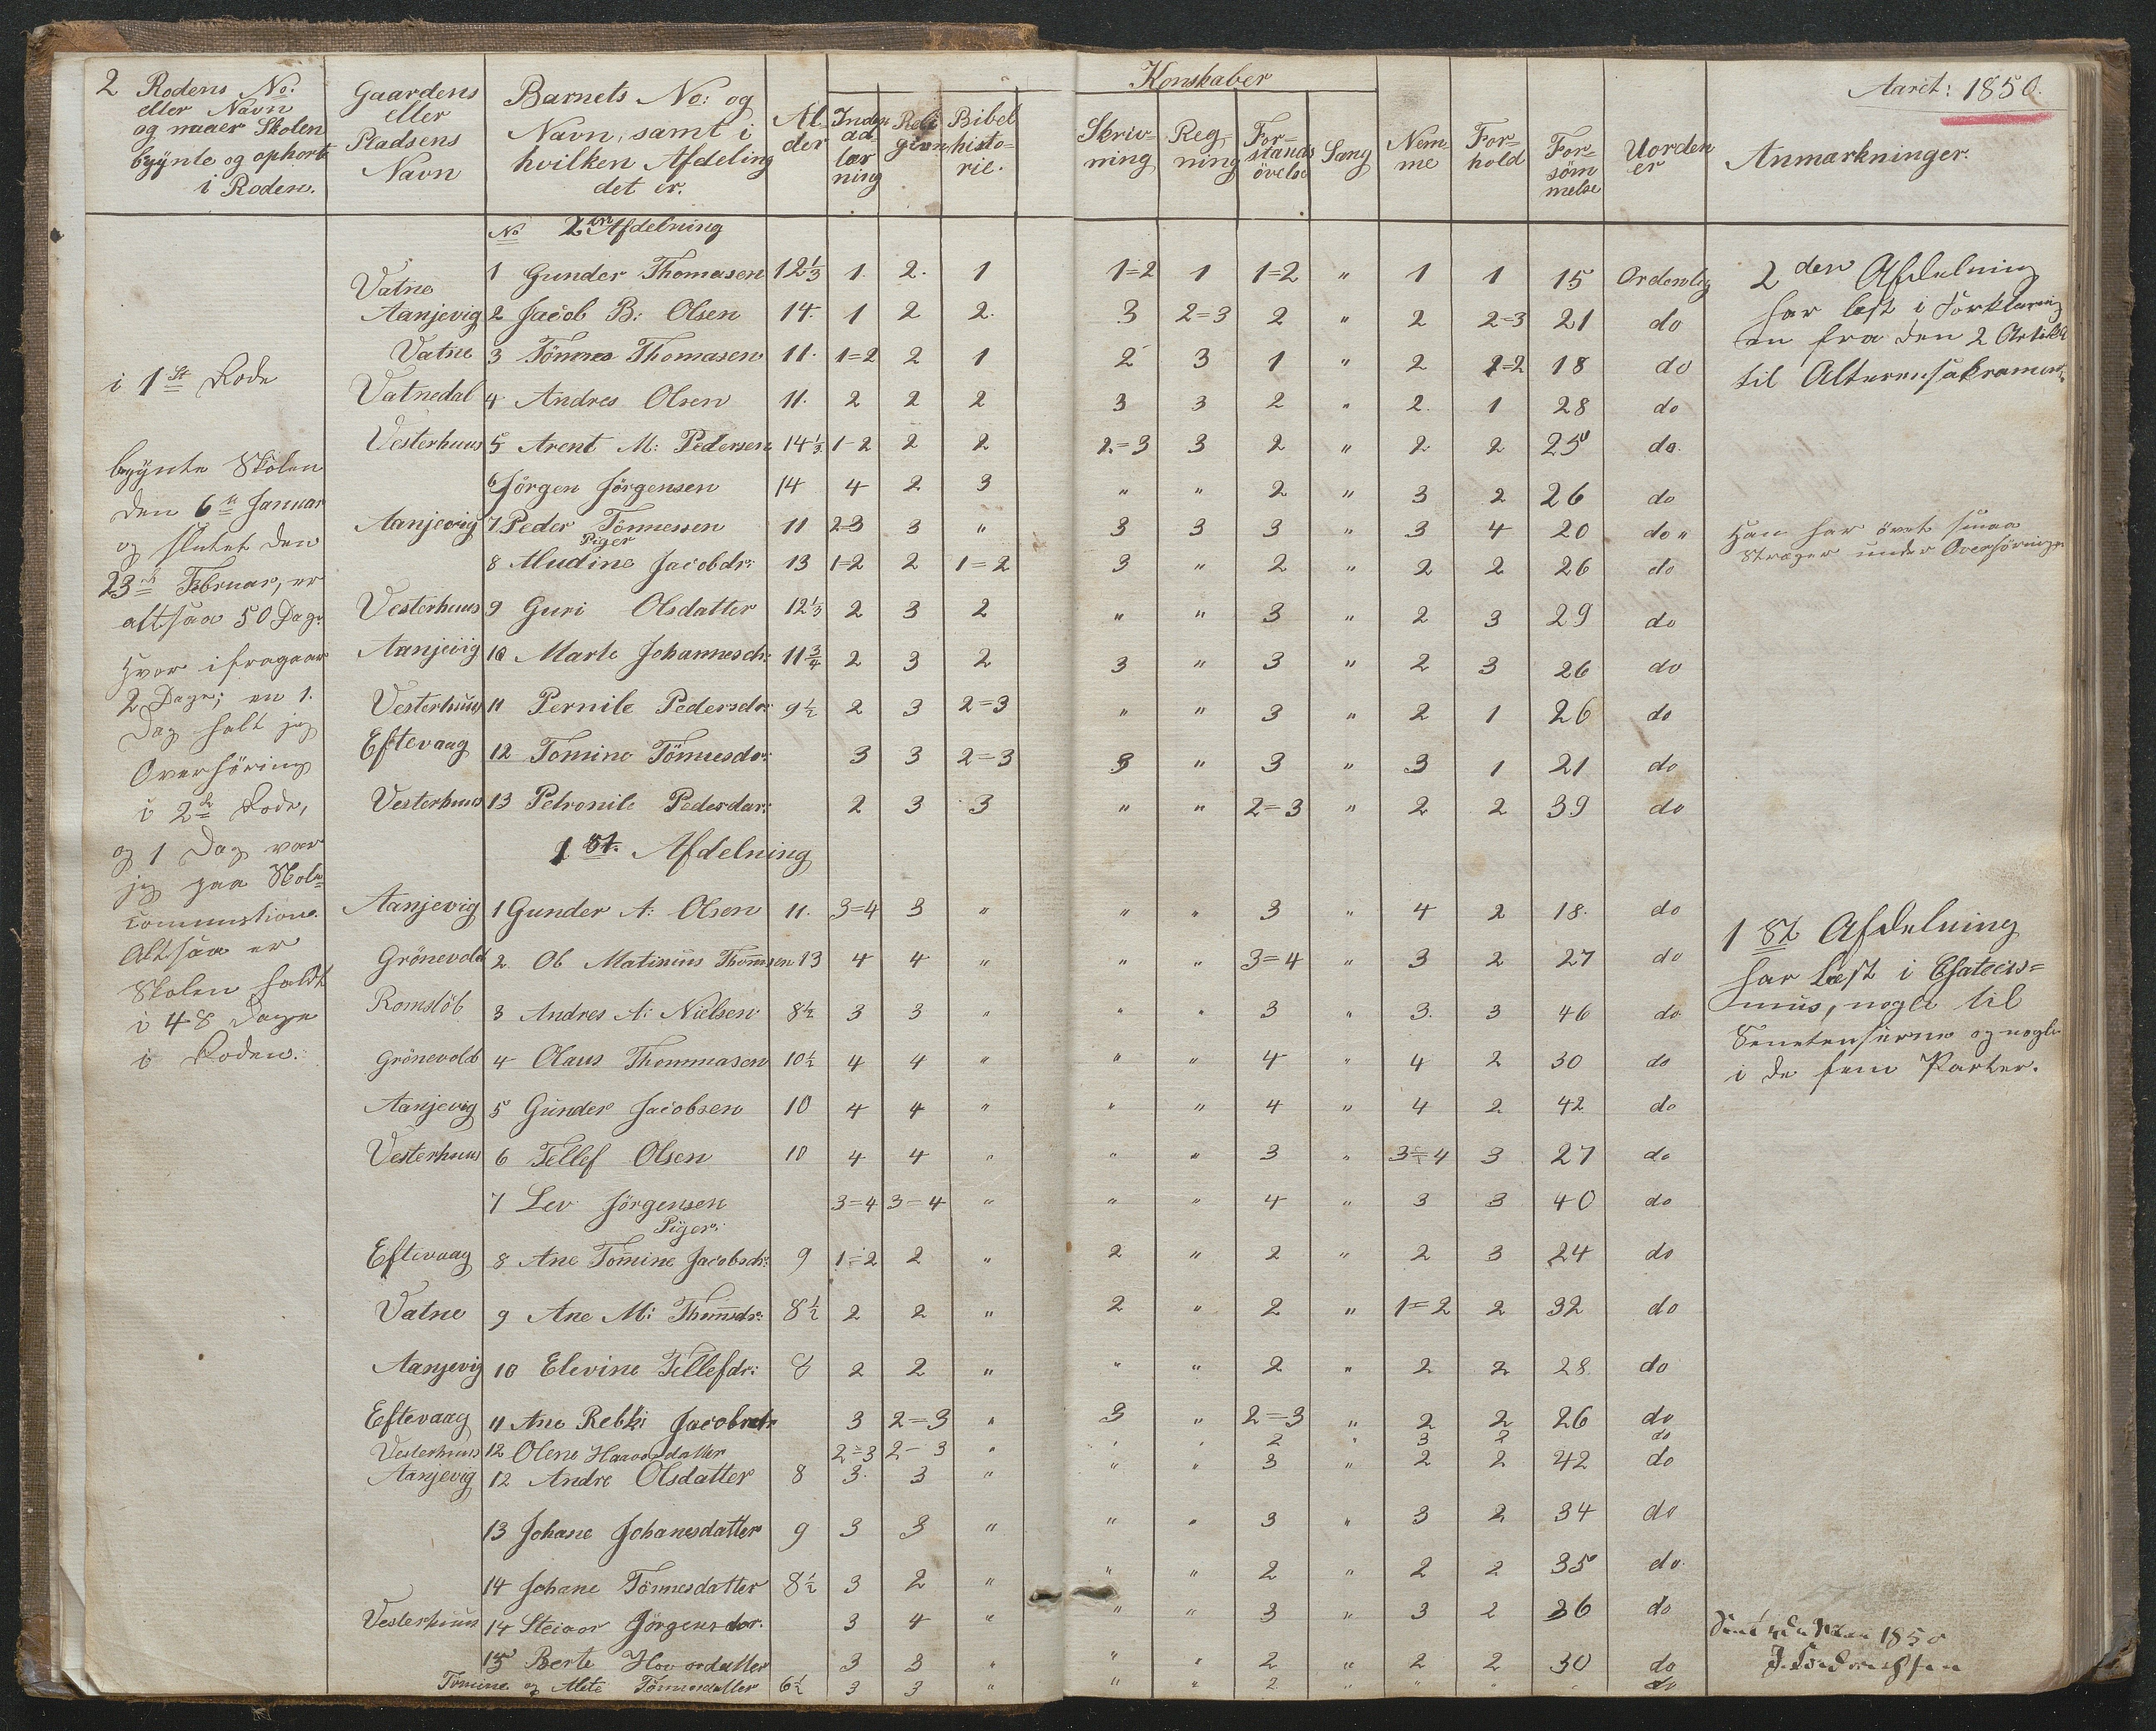 2 Rodens No: eller Navn og naaer Skolen begynte og ophorte i Roden.
Gaardens eller Pladsens Navn
Barnets No: og Navn, samt i hvilken Afdeling det er.
Alder
Konskaber
Indenadlærning
Religion
Bibelhistorie.
Skrivning
Regning
Forstandsövelse
Sang
Nemme
Forhold
Forsömmelse
Uordener
Aaret: 1850.
Anmærkninger.
No 2en Afdelning
Vatne 1 Gunder Thomasen 12 1/3 1. 2. 1 1=2 1 1=2 " 1 1 15 Ordenlig
Aanjevig 2 Jacob B: Olsen 14. 1 2 2. 3 2=3 2 " 2 2=3 21 do
Vatne 3 Tönnes Thomasen 11. 1=2 2 1 2 3 1 " 2 1=2 18 do
Vatnedal 4 Andres Olsen 11. 2 2 2 3 3 2 " 2. 1 28 do
Vesterhuus 5 Arent M: Pedersen 14 1/3 1-2 2 2 2=3 3 2 " 2 2 25 do.
6 Jörgen Jörgensen 14 4 2 3 " " 2 " 3 2 26 do
Aanjevig 7 Peder Tönnessen 11 2=3 3 " 3 3 3 " 3 4 20 do "
Piger
8 Mudine Jacobdr: 13 1=2 2 1=2 3 " 2 " 2 2 26 do
Vesterhuus 9 Guri Olsdatter 12 1/3 2 3 2 " " 3 " 2 3 29 do
Aanjevig 10 Marte Johannesdr: 11 3/4 2 3 2 3 " 3 " 2 3 26 do
Vesterhuus 11 Pernile Pedersdr: 9 1/2 2 3 2=3 " " 3 " 2 1 26 do
Eftevaag 12 Tomine Tönnesdr: 3 3 2=3 3 " 3 " 3 1 21 do
Vesterhuus 13 Petronile Pedersdar: 2 3 3 " " 2=3 " 2 2 39 do
1 St. Afdelning
Aanjevig 1 Gunder A: Olsen 11. 3=4 3 " " " 3 " 4 2 18. do
Grönevold 2 Ob Matinius Thomsen 13 4 4 " " " 3=4 " 3 2 27 do
Romslöb 3 Andres A: Nielsen 8 1/2 3 3 " " " 3 " 3. 3 46 do
Grönevold 4 Olaus Thommasen 10 1/2 4 4 " " " 4 " 4 2 30 do
Aanjevig 5 Gunder Jacobsen 10 4 4 " " " 4 " 4 2 42 do
Vesterhuus 6 Tellef Olsen 10 4 4 " " " 3 " 3=4 3 27 do
7 Lev Jörgensen 3=4 3=4 " " " 4 " 3 3 40 do
Piger:
Eftevaag 8 Ane Tomine Jacobsdr: 9 1=2 2 " 2 " 2 " 2 3 24 do
Vatne 9 Ane M: Thomsdr: 8 1/2 2 2 " 2 " 2 " 1=2 2 32 do
Aanjevig 10 Elevine Tellefdr: 8 2 2 " " " 2 " 2 2 28. do
Eftevaag 11 Ane Rebki Jacobsdr 3 2=3 " 3 " 2=3 " 2 2 26 do
Vesterhuus 12 Olene Haavorsdatter 2=3 2-3 " " " 2 " 3 2 do
Aanjevig 12 Andre Olsdatter 8 3. 3 " " " 3 " 2 2 42 do
13 Johane Johanesdatter 9 3 3 " " " 3 " 3 2 34 do
14 Johane Tönnesdatter 8 1/2 3 2 " " " 2 " 2 2 35 do.
Vesterhuus 14 Steinor Jörgensdar. 3 4 " " " 3 " 3 2 36 do
15 Berte Hovordatter 3 3 " " " 2 " 2 2 30 do
Tomine og Alete Tönnesdatter 6 1/2 3 3 " " " 2 " " " " do
i 1 St Rode
begynte Skolen
den 6te Januar
og slutet den
23de Februar, er
altsaa 50 Dage
hvor ifragaar
2 Dage; en 1.
Dag holt jeg
Overhöring
i 2de Rode,
og 1 Dag var
jeg paa Skole=
Altsaa er
Skolen holdt
i 48 Dage
i Roden.
2 den Afdelning
har læst i Forklaring
en fra den 2 Artikel
til Alterens Sakrament
Han har övet smaa
Streger under Overhöringe
1 St Afdelning
har læst i Chatecis=
mus, nogle til
og nogle
i de fem Parter.
1850